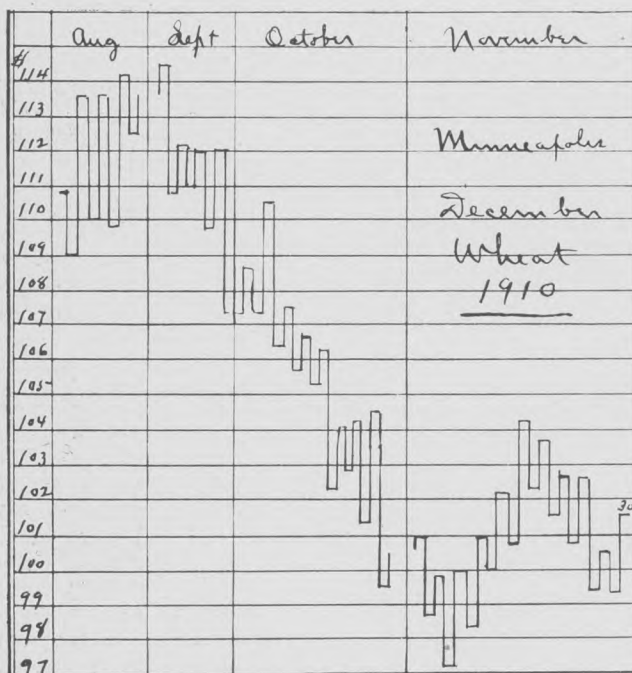 Aug Sept October November
$
114
113
112
111
110
109
108
107
106
105
104
103
102
101
100
99
98
97
Minneapolis
December
Wheat
1910
30